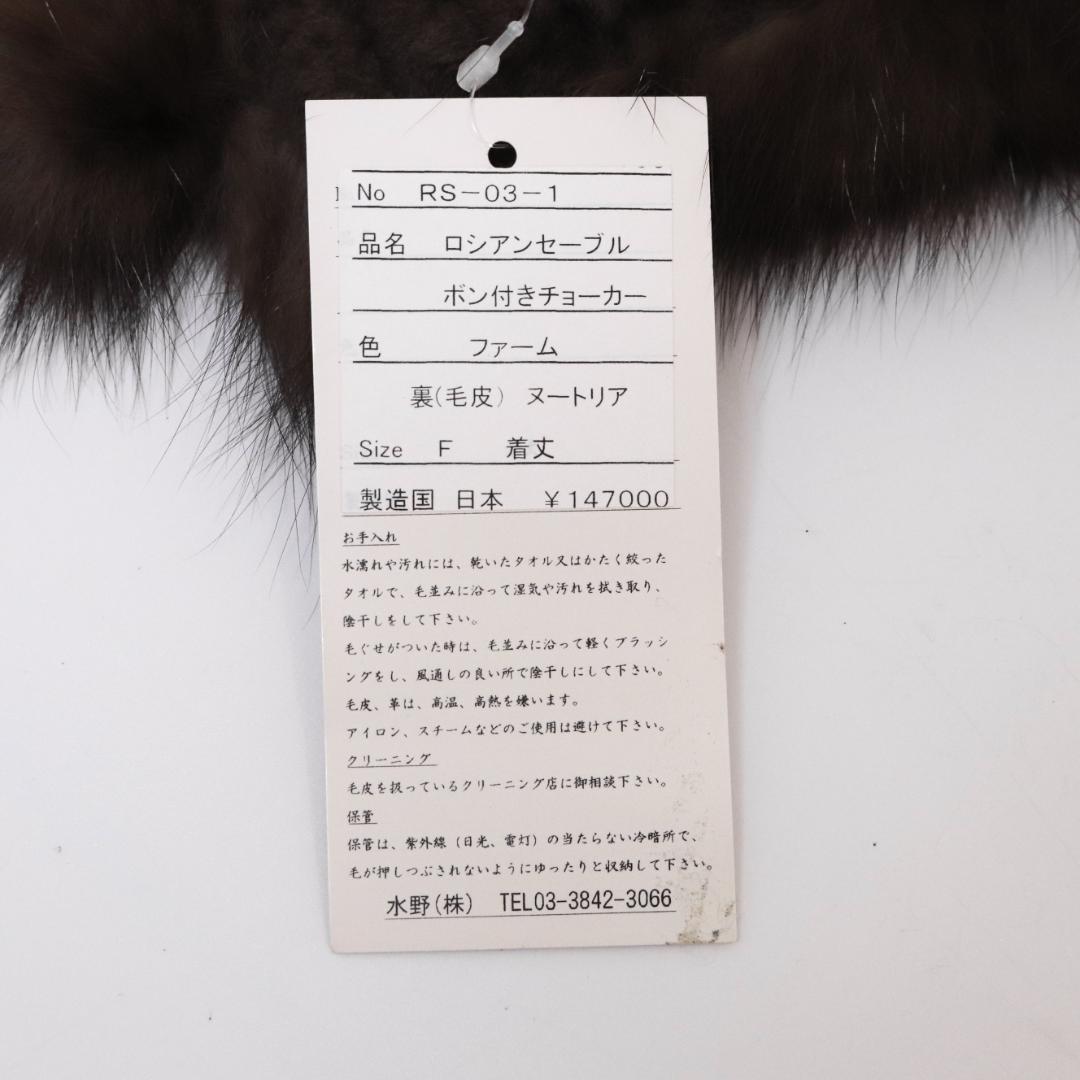 No RS-03-1
品名 ロシアンセーブル
ボン付きチョーカー
色 ファーム
裏(毛皮) ヌートリア
Size F 着丈
製造国 日本 ¥147000
お手入れ
水濡れや汚れには、乾いたタオル又はかたく絞った
タオルで、毛並みに沿って湿気や汚れを拭き取り、
陰干しをして下さい。
毛ぐせがついた時は、毛並みに沿って軽くブラッシ
ングをし、風通しの良い所で陰干しにして下さい。
毛皮、革は、高温、高熱を嫌います。
アイロン、スチームなどのご使用は避けて下さい。
クリーニング
毛皮を扱っているクリーニング店に御相談下さい。
保管
保管は、紫外線(日光、電灯)の当たらない冷暗所で、
毛が押しつぶされないようにゆったりと収納して下さい。
水野(株) TEL03-3842-3066